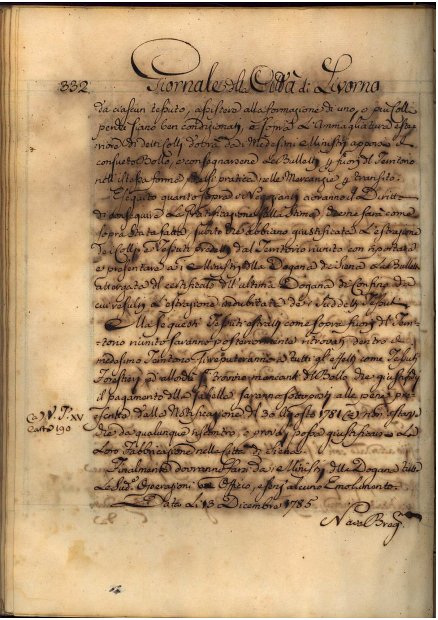 332
Giornale della Città di Livorno
da ciascun tessuto, assistere alla formazione di uno, o più Colli
perche siano ben condizionati, e sopra L'ammagliatura
di detti Colli dovrà da medesimi Ministri apporsi il
consueto Bollo, e consegnarsene Le Bullette fuori del Territorio
nell'istessa forma pratica nelle Mercanzie di transito.
Eseguito quanto sopra i Negozianti avranno il Diritto
di conseguire La Gratificazione sulla Stima da farsi come
sopra stata fatta, subito che abbiano giustificato L'estrazione
dei Colli, o Tessuti dal Territorio riunito con riportare
e presentare ai Ministri della Dogana di Siena Le Bullette
del certificato dell'ultima Dogana di Confine da
cui resulti L'estrazione indubitata dei suddetti Tessuti
Ma se questi Tessuti come sopra fuori del Terri-
torio riunito saranno posteriormente ritrovati dentro il
medesimo Territorio si reputeranno a tutti gli effetti come Tessuti
Forestieri, e allorchè si trovino mancanti del Bollo che giustifichi
il pagamento della Gabella saranno sottoposti alle pene pre-
scritte dalla Notificazione di 30 Agosto 1781
da qualunque riscontro, e prova possa giustificare La
Loro Fabbricazione nella Città di Siena.
Finalmente dovranno farsi dai Ministri delle Dogane tutte
Le Sudd. Operazioni ex Officio, e senz'alcuno Emolumento.
Data Li 13 Dicembre 1785
Carte 190